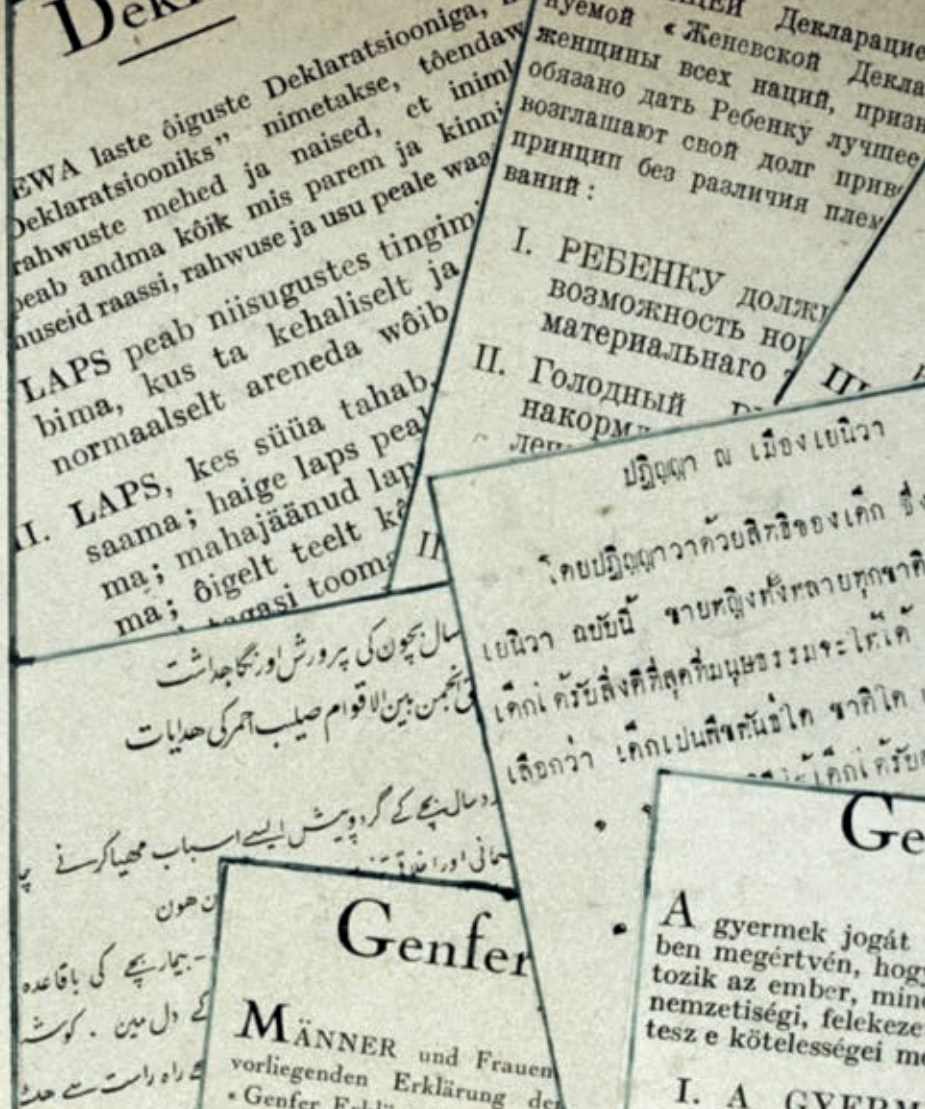 EWA laste ôiguste Deklaratsiooniga,
Deklaratsiooniks” nimetakse, tôendaw
rahwuste mehed ja naised, et iniml
peab andma kôik mis parem ja kinni
nuseid raassi, rahwuse ja usu peale waa
LAPS peab niisugustes tingim
bima, kus ta kehaliselt ja
normaalselt areneda wôib
II. LAPS, kes süüa tahab,
saama; haige laps peal
ma; mahajäänud lap
ma; ôigelt teelt kô
tagasi tooma
ЩЕЙ Декларацие
нуемой « Женевской Декла
женщины всех наций, призн
обязано дать Ребенку лучшее
возглашают свой долг прив
принцип без различия плем
ваний :
I. РЕБЕНКУ должн
возможность нор
материальнаго
II. Голодный
накормл
III
II
ปฏิญญา ณ เมืองเยนิวา
โดยปฏิญญาวาด้วยสิทธิของเด็ก ซึ่ง
เยนิวา ฉบับนี้ ชายหญิงทั้งหลายทุกชาติ
เด็กได้รับสิ่งดีที่สุดที่มนุษธรรมจะให้ได้
เลือกว่า เด็กเปนสืชพันธ์ใด ชาติใด
เด็กได้รับ
سال بچون کی پرورش اور نگاہداشت
انجمن بین الاقوام صلیب احمر کی ھدایات
دسال بچے کے گرد و پیش ایسے اسباب مھیا کرنے
سمانی اور اخلاقی
ن ھون
- بیمار بچے کی باقاعدہ
کے دل مین . کوشہ
ے راہ راست سے ھٹ
Genfer
MÄNNER und Frauen
vorliegenden Erklärung der
« Genfer Erklä
Ge
A gyermek jogát
ben megértvén, hogy
tozik az ember, mind
nemzetiségi, felekeze
tesz e kötelességei me
I. A GYERM